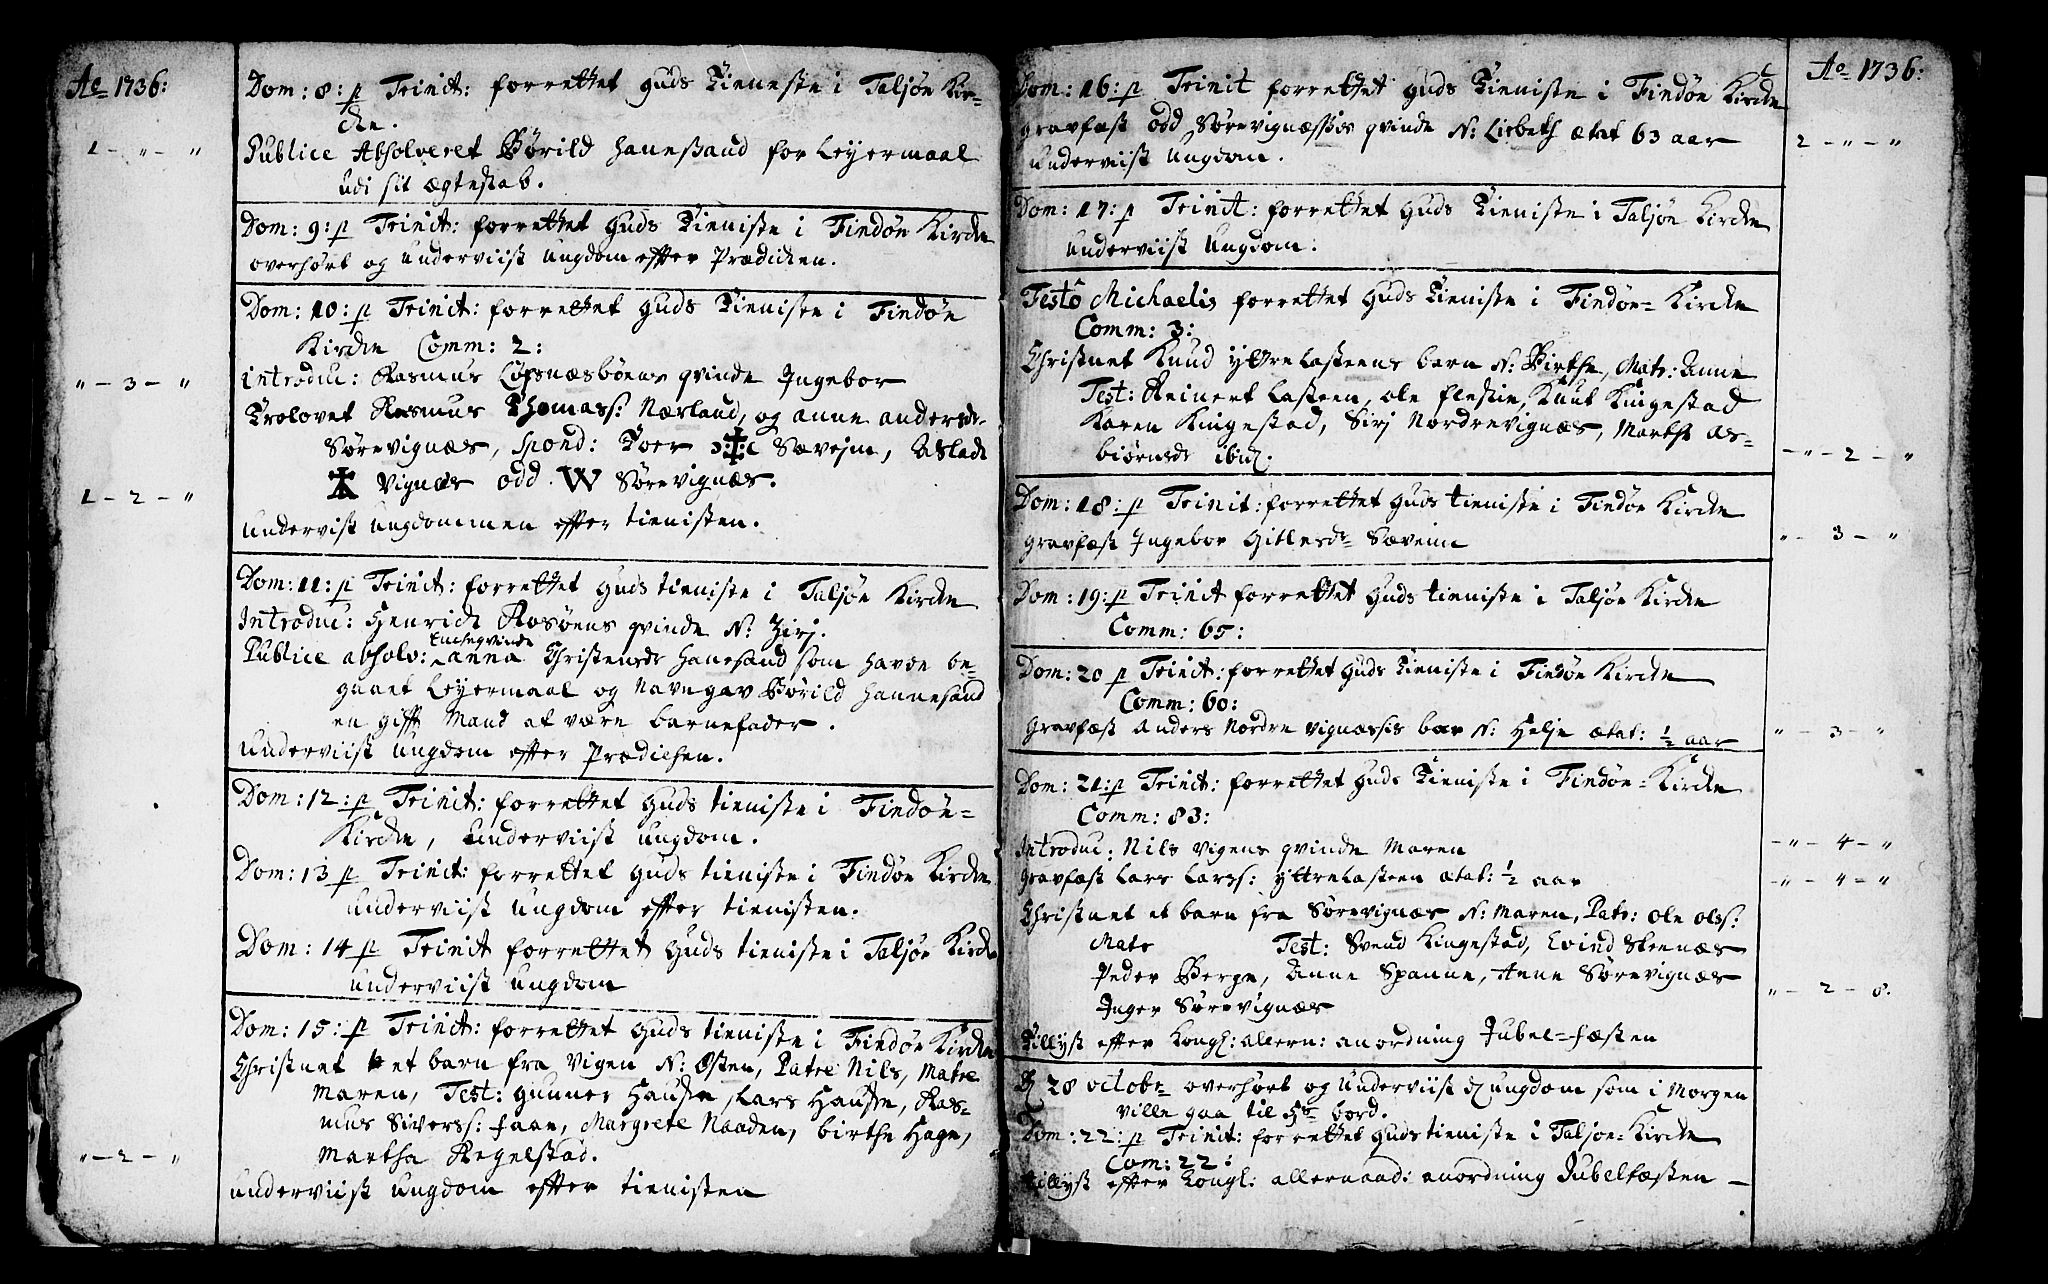 Ao 1736:
Dom: 8: p Trinit: forrettet guds Tieneste i Taljøe Kir-
che.
1 - " - "
Publice Absolveret Børild Hanessand for Leyermaal
udi sit Ægteskab.
Dom: 9: p Trinit: forrettet Guds Tieniste i Findøe Kirche
overhørt og underviist ungdom effter Prædichen.
Dom: 10: p Trinit: forrettet Guds Tieniste i Findøe
Kirche Comm: 2:
" - 3 - "
introduc: Rasmus Løfsnæsbøens qvinde Ingebor
Trolovet Rasmus Thomass: Nærland, og anne andersd-
Sørevignæs, Spond: Toer Sævejm, Aslach
1 - 2 - "
Vignæs odd W Sørevignæs.
undervist ungdommen effter tienisten.
Dom: 11: p Trinit: forrettet Guds tieniste i Taljøe Kirche
Introduc: Henrich Rosøens qvinde N: Zirj.
Encheqvinde
Publice absolv: anna Christensd: Hanesand som havde be-
gaaet Leyermaal og Navngav Børild Hannesand
en gifft Mand at være barnefader.
underviist ungdom effter Prædichen.
Dom: 12: p Trinit: forrettet Guds tieniste i Findøe-
Kirche, underviist ungdom.
Dom: 13 p Trinit: forrettet Guds tieniste i Findøe Kirche
underviist ungdom effter tienisten.
Dom: 14 p Trinit forrettet Guds tieniste i Taljøe Kirche
underviist ungdom
Dom: 15: p Trinit: forrettet Guds tieniste i Findøe Kirche
Christnet et barn fra Vigen N: Osten, Patre Nils, Matre
Maren, Test: gunner Hausken, Lars Hausken, Ras-
mus Siverss: faae, Margrete Naaden, birthe Hagen,
" - 2 - "
Martha Regelstad.
underviist ungdom effter tienisten
Ao 1736:
Dom: 16: p Trinit forrettet Guds Tieniste i Findøe Kirche
gravfæst odd Sørevignæssis qvinde N: Lisbeth ætat 63 aar
2 - " - "
underviist ungdom.
Dom: 17: p Trinit: forrettet Guds Tieniste i Taljøe Kirche
underviist ungdom:
Festo Michaelis forrettet Guds Tieniste i Findøe- Kirche
Comm: 3:
Christnet Knud ytterlasteens barn N: Birthe, Matr: Anne
Test: Reinert Lasteen, ole fleskie, Knut Kingestad
Karen Kingestad, Sirj Nordrevignæs, Marthe as-
biørnsd: ibid.
- " - 2 - "
Dom: 18: p Trinit: forrettet Guds tieniste i Findøe Kirche
gravfæst Ingebor Gitlesd: Sæveim
" - 3 - "
Dom: 19: p Trinit forrettet Guds tieniste i Taljøe Kirche
Comm: 65:
Dom: 20 p Trinit: forrettet Guds Tieniste i Findøe Kirche
Comm: 60:
gravfæst Anders Nordre Vignæssis bar N: Helje ætat: 1/2 aar
" - 3 - "
Dom: 21: p Trinit: forrettet Guds Tieniste i Findøe- Kirche
Comm: 83:
Introduc: Nils Vigens qvinde Maren
- " - 4 - "
gravfæst Lars Larss: yttrelasteen ætat: 1/2 aar
- " - 4 - "
Christnet et barn fra Sørevignæs N: Maren, Patr: Ole olss:
Matr Test: Svend Kingestad, Evind Steenæs
Peder Berge, Anne Spanne, Anne Sørevignæs
" - 2 - 8.
Inger Sørevignæs
Tillyst effter Kongl: allern: anordning Jubel-fæsten
D 28 octobr overhørt og Underviist ungdom som i Morgen
ville gaa til Hs bord.
Dom: 22: p Trinit: forrettet Guds tieniste i Taljøe- Kirche
Com: 22:
tillyst effter Kongl: allernaad: anordning Jubelfæsten -